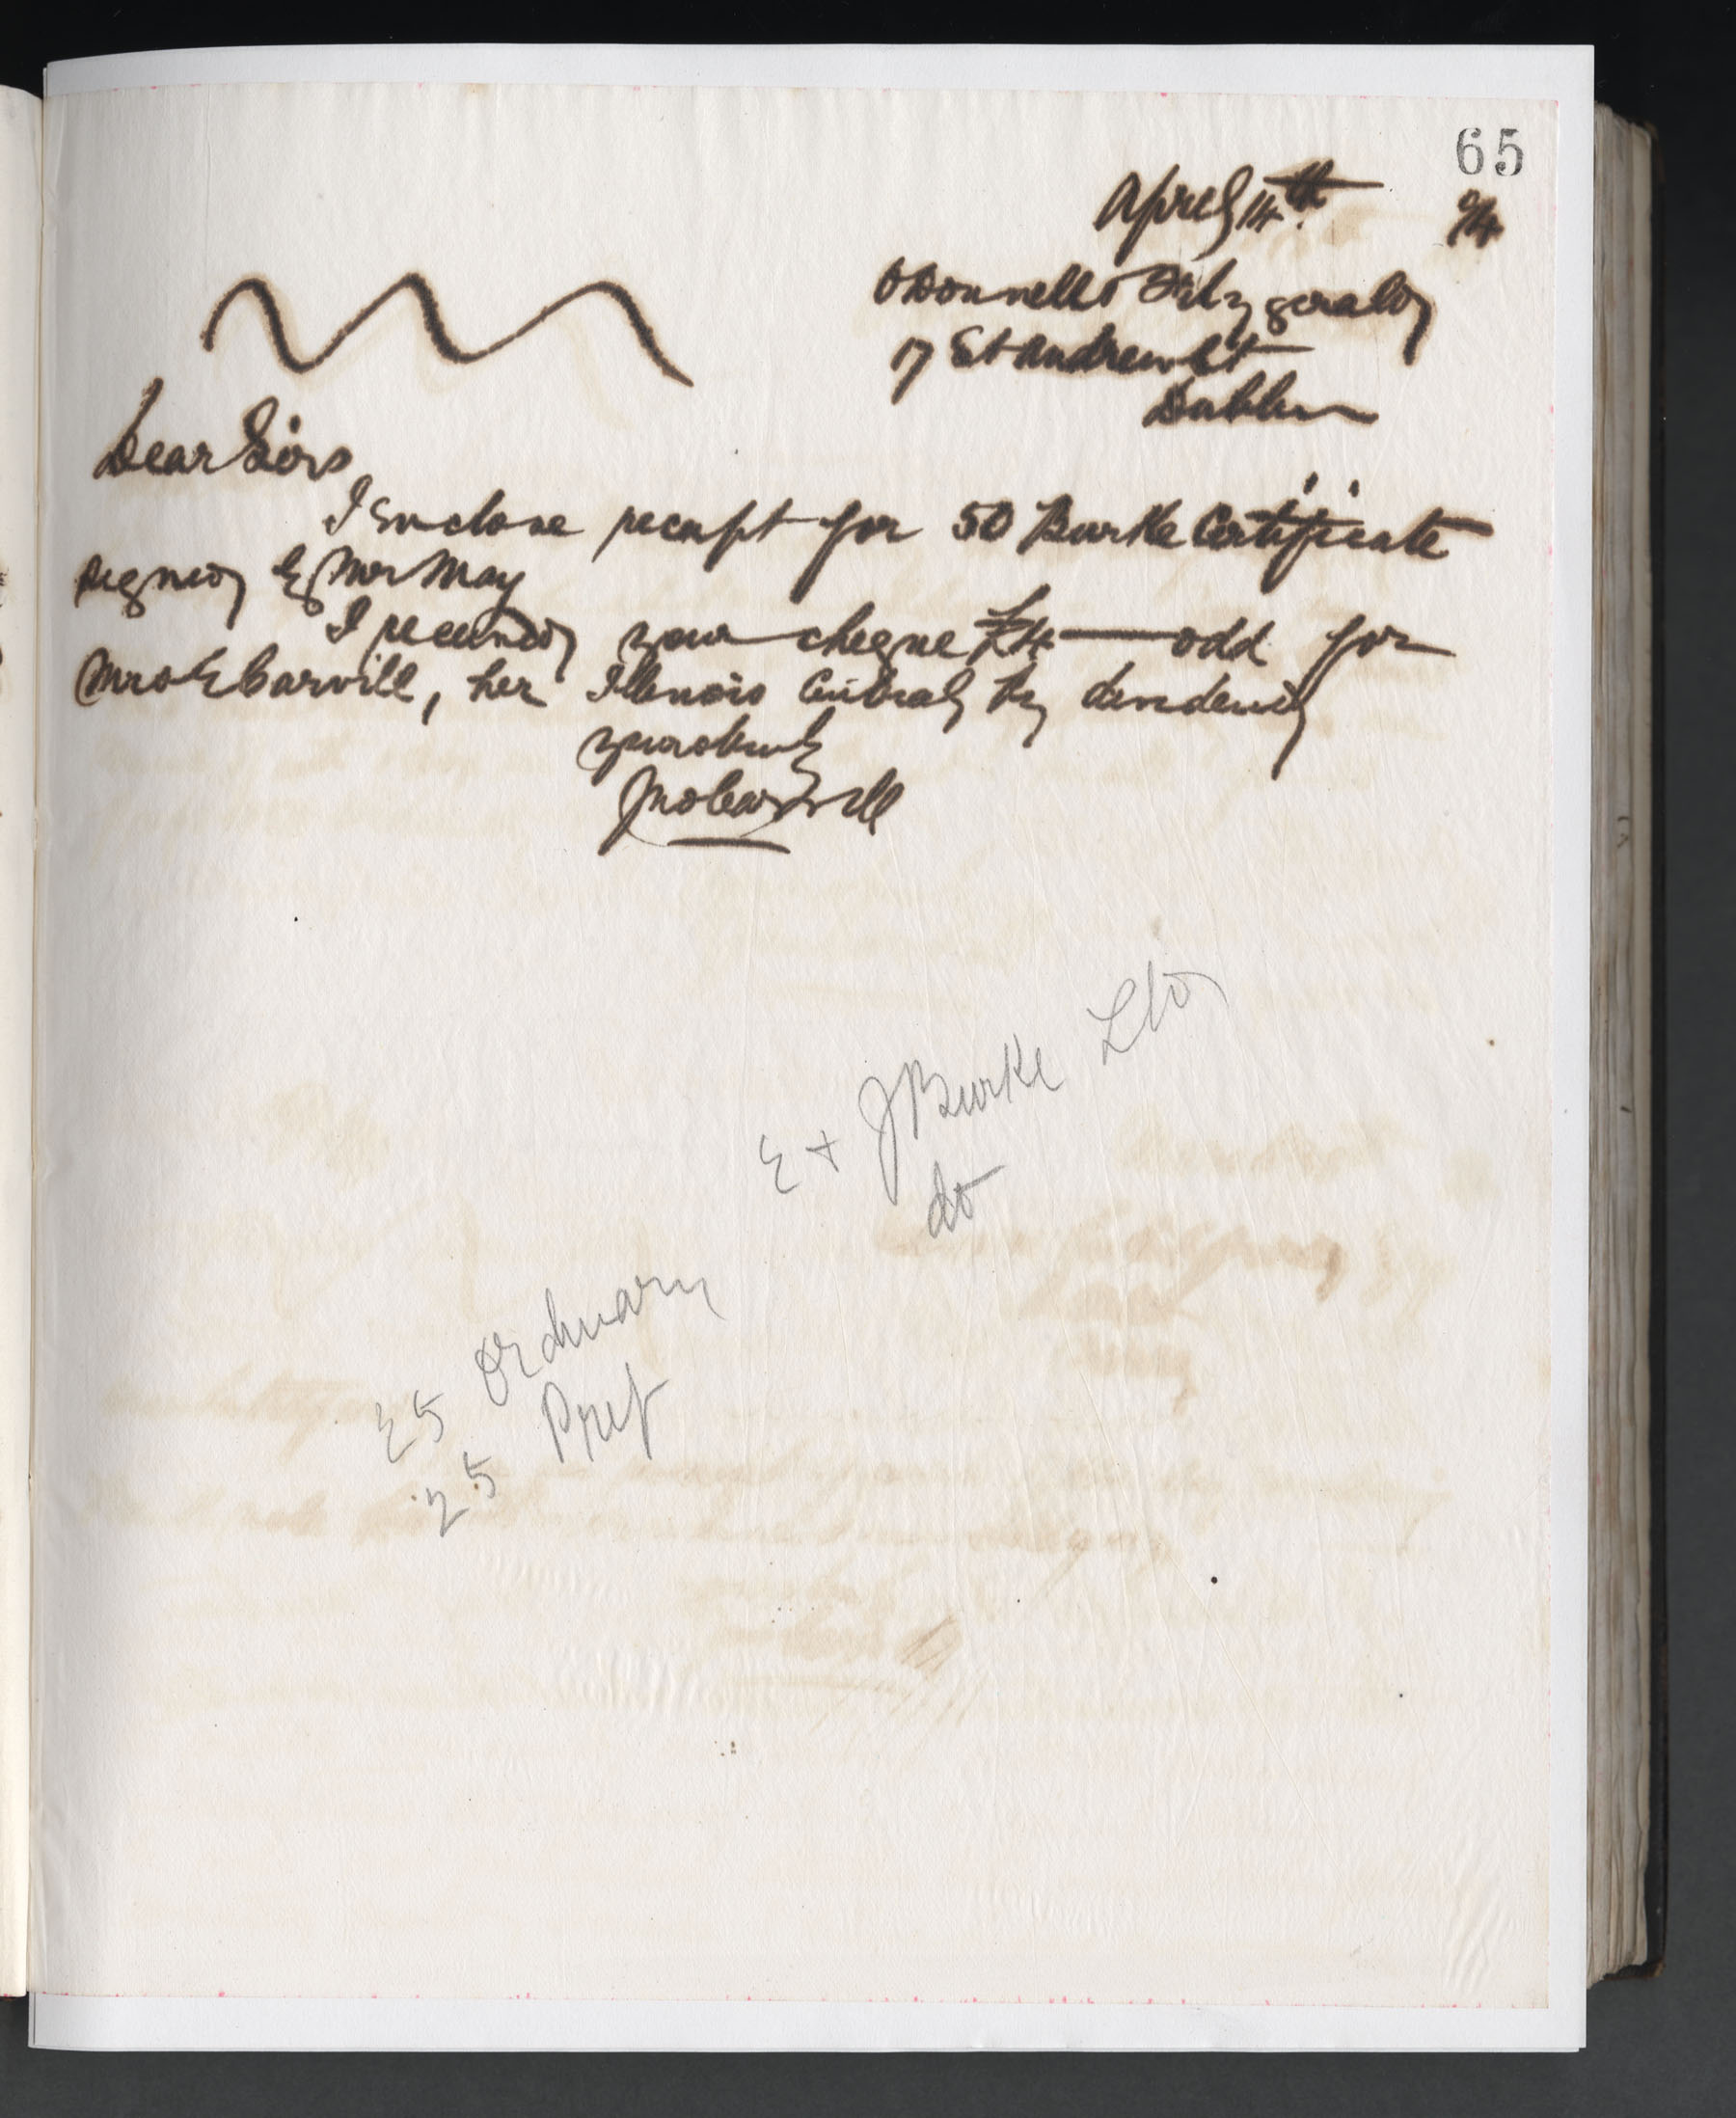 65
April 14th 04
O'Donnell & Fitzgerald
17 St Andrew St
Dublin
Dear Sirs
I enclose receipt for 50 Burke Certificate
signed by Mr May
I received your cheque £4 — odd for
Mrs E Carvill, her Illinois Central Ry dividend
yours truly
Jno Carvill
E + J Burke Ltd
do
25 Ordinary
25 Pref